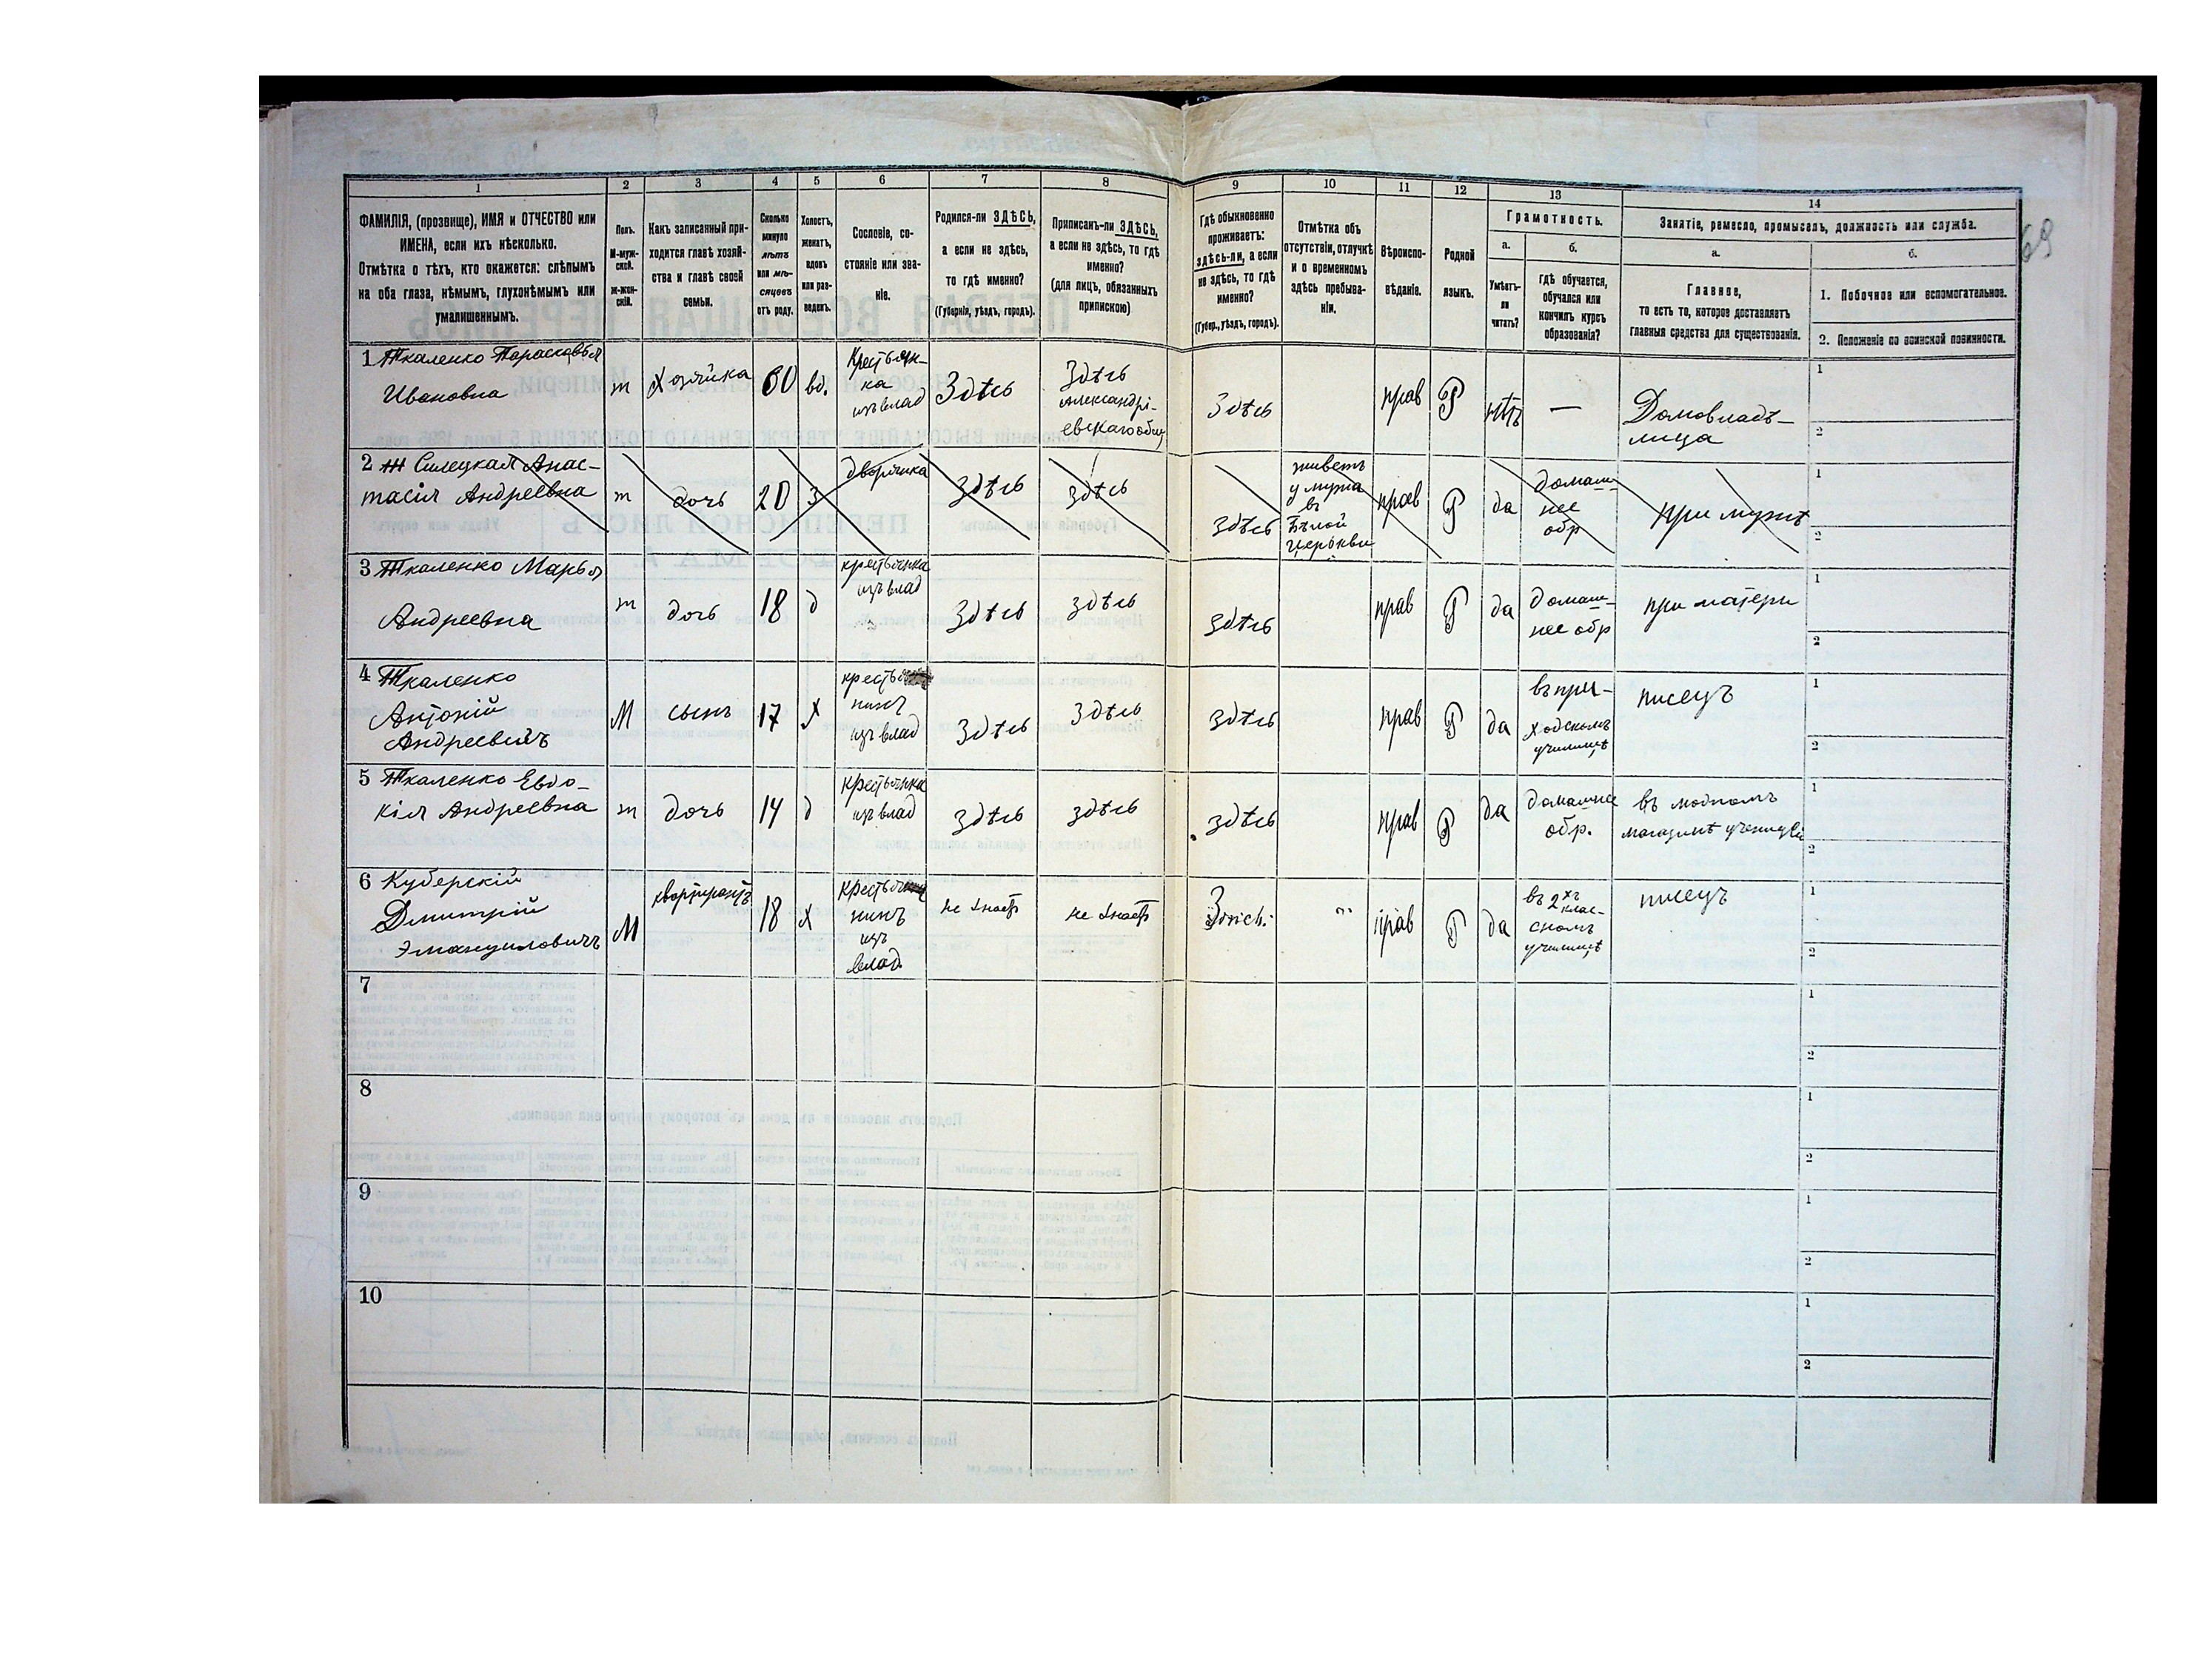 1 2 3 4 5 6 7 8 9 10 11 12 13 14
ФАМИЛІЯ, (прозвище), ИМЯ и ОТЧЕСТВО или
ИМЕНА, если ихъ нѣсколько.
Отмѣтка о тѣхъ, кто окажется: слѣпымъ
на оба глаза, нѣмымъ, глухонѣмымъ или
умалишеннымъ.
Полъ.
М-муж-
ской.
ж-жен-
скій.
Какъ записанный при-
ходится главѣ хозяй-
ства и главѣ своей
семьи.
Сколько
минуло
лѣтъ
или мѣ-
сяцевъ
отъ роду.
Холостъ,
женатъ,
вдовъ
или раз-
веденъ.
Сословіе, со-
стояніе или зва-
ніе.
Родился-ли ЗДѢСЬ,
а если не здѣсь,
то гдѣ именно?
(Губернія, уѣздъ, городъ).
Приписанъ-ли ЗДѢСЬ,
а если не здѣсь, то гдѣ
именно?
(для лицъ, обязанныхъ
припискою)
Гдѣ обыкновенно
проживаетъ:
здѣсь-ли, а если
не здѣсь, то гдѣ
именно?
(Губер., уѣздъ, городъ).
Отмѣтка объ
отсутствіи, отлучкѣ
и о временномъ
здѣсь пребыва-
ніи.
Вѣроиспо-
вѣданіе.
Родной
языкъ.
Грамотность.
а.
Умѣетъ-
ли
читать?
б.
гдѣ обучается,
обучался или
кончилъ курсъ
образованія?
Занятіе, ремесло, промыселъ, должность или служба.
а.
Главное,
то есть то, которое доставляетъ
главныя средства для существованія.
б.
1. Побочное или вспомогательное.
2. Положеніе по воинской повинности.
69
1 Ткаленко Парасковья
Ивановна
ж
Хозяйка
60
вд.
Крестьян-
ка
изъ влад
Здѣсь
Здѣсь
Александрі-
евскаго общ
Здѣсь
прав
Р
нѣтъ
—
Домовладѣ-
лица
1
2
2 Силецкая Анас-
тасія Андреевна
ж
дочь
20
з
дворянка
здѣсь
здѣсь
здѣсь
живетъ
у мужа
въ
Бѣлой
Церкви
прав
Р
да
домаш-
нее
обр
при мужѣ
1
2
3 Ткаленко Марья
Андреевна
ж
дочь
18
д
крестьянка
изъ влад
здѣсь
здѣсь
здѣсь
прав
Р
да
домаш-
нее обр
при матери
1
2
4 Ткаленко
Антоній
Андреевичъ
М
сынъ
17
х
крестья
нинъ
изъ влад
здѣсь
здѣсь
здѣсь
прав
Р
да
въ при-
ходскомъ
училищѣ
писецъ
1
2
5 Ткаленко Евдо-
кія Андреевна
ж
дочь
14
д
крестьянка
изъ влад
здѣсь
здѣсь
здѣсь
прав
Р
да
домашнее
обр.
въ модномъ
магазинѣ ученица
1
2
6 Куберскій
Дмитрій
Эмануиловичъ
М
квартирантъ
18
х
крестья
нинъ
изъ
влад.
не знаетъ
не знаетъ
прав
Р
да
въ 2хъ клас-
сномъ
училищѣ
писецъ
1
2
7
1
2
8
1
2
9
1
2
10
1
2